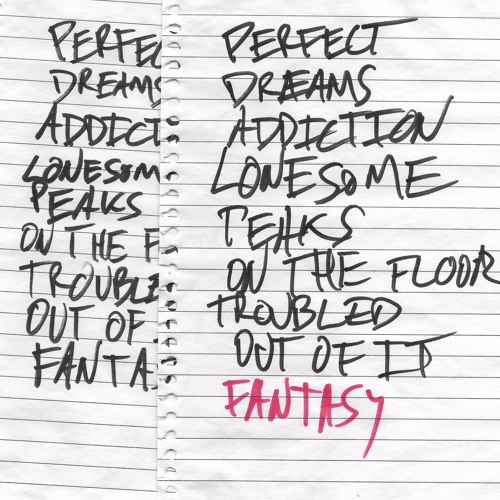 PERFEC
DREAMS
ADDICT
LONESOM
PEAKS
ON THE F
TROUBLE
OUT OF
FANTA
PERFECT
DREAMS
ADDICTION
LONESOME
PEAKS
ON THE FLOOR
TROUBLED
OUT OF IT
FANTASY